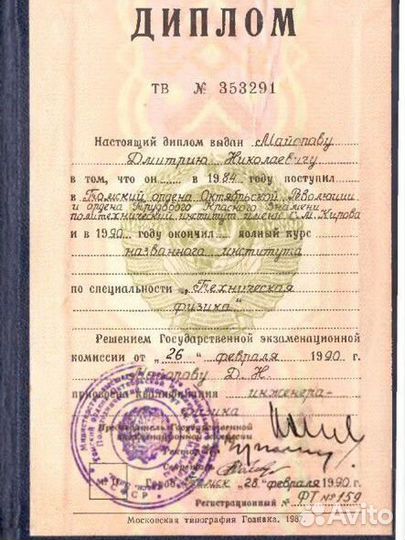 ДИПЛОМ
ТВ № 353291
Настоящий диплом выдан Майорову
Дмитрию Николаевичу
в том, что он в 1984 году поступил
в Томский ордена Октябрьской Революции
и ордена Трудового Красного Знамени
политехнический институт имени С.М. Кирова
и в 1990 году окончил полный курс
названного института
по специальности „Техническая
физика"
Решением Государственной экзаменационной
комиссии от „26" февраля 1990 г.
Майорову Д.Н.
присвоена квалификация инженера-
физика
Председатель Государственной
экзаменационной комиссии
Ректор
Секретарь
Город Томск „28" февраля 1990 г.
Регистрационный № ФТ №159
Московская типография Гознака. 1987.
Avito